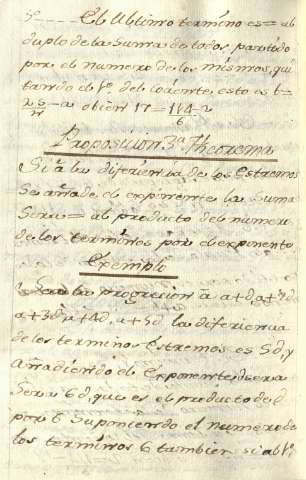 3º ---- El Ultimo termino es = al
duplo de la Suma de todos partido
por el numero de los mismos, qui
tando el 1º del cociente, esto es t =
2s/n - a o bien 17 = 114/6 - 2
Proposicion 3ª Theorema
Si a la diferiencia de los Estremos
Se añade el exponente la Suma
Sera = al producto del numero
de los terminos por el exponente
Exemplo
Sea la progrecion a. a+d, a+2d,
a+3d, a+4d, a+5d la diferiencia
de los terminos Estremos es 5d, y
añadiendo el Exponente d sera
Sera 6d, que es el producto de d
por 6 Suponiendo el numero de
los terminos 6 tambien si al 1º